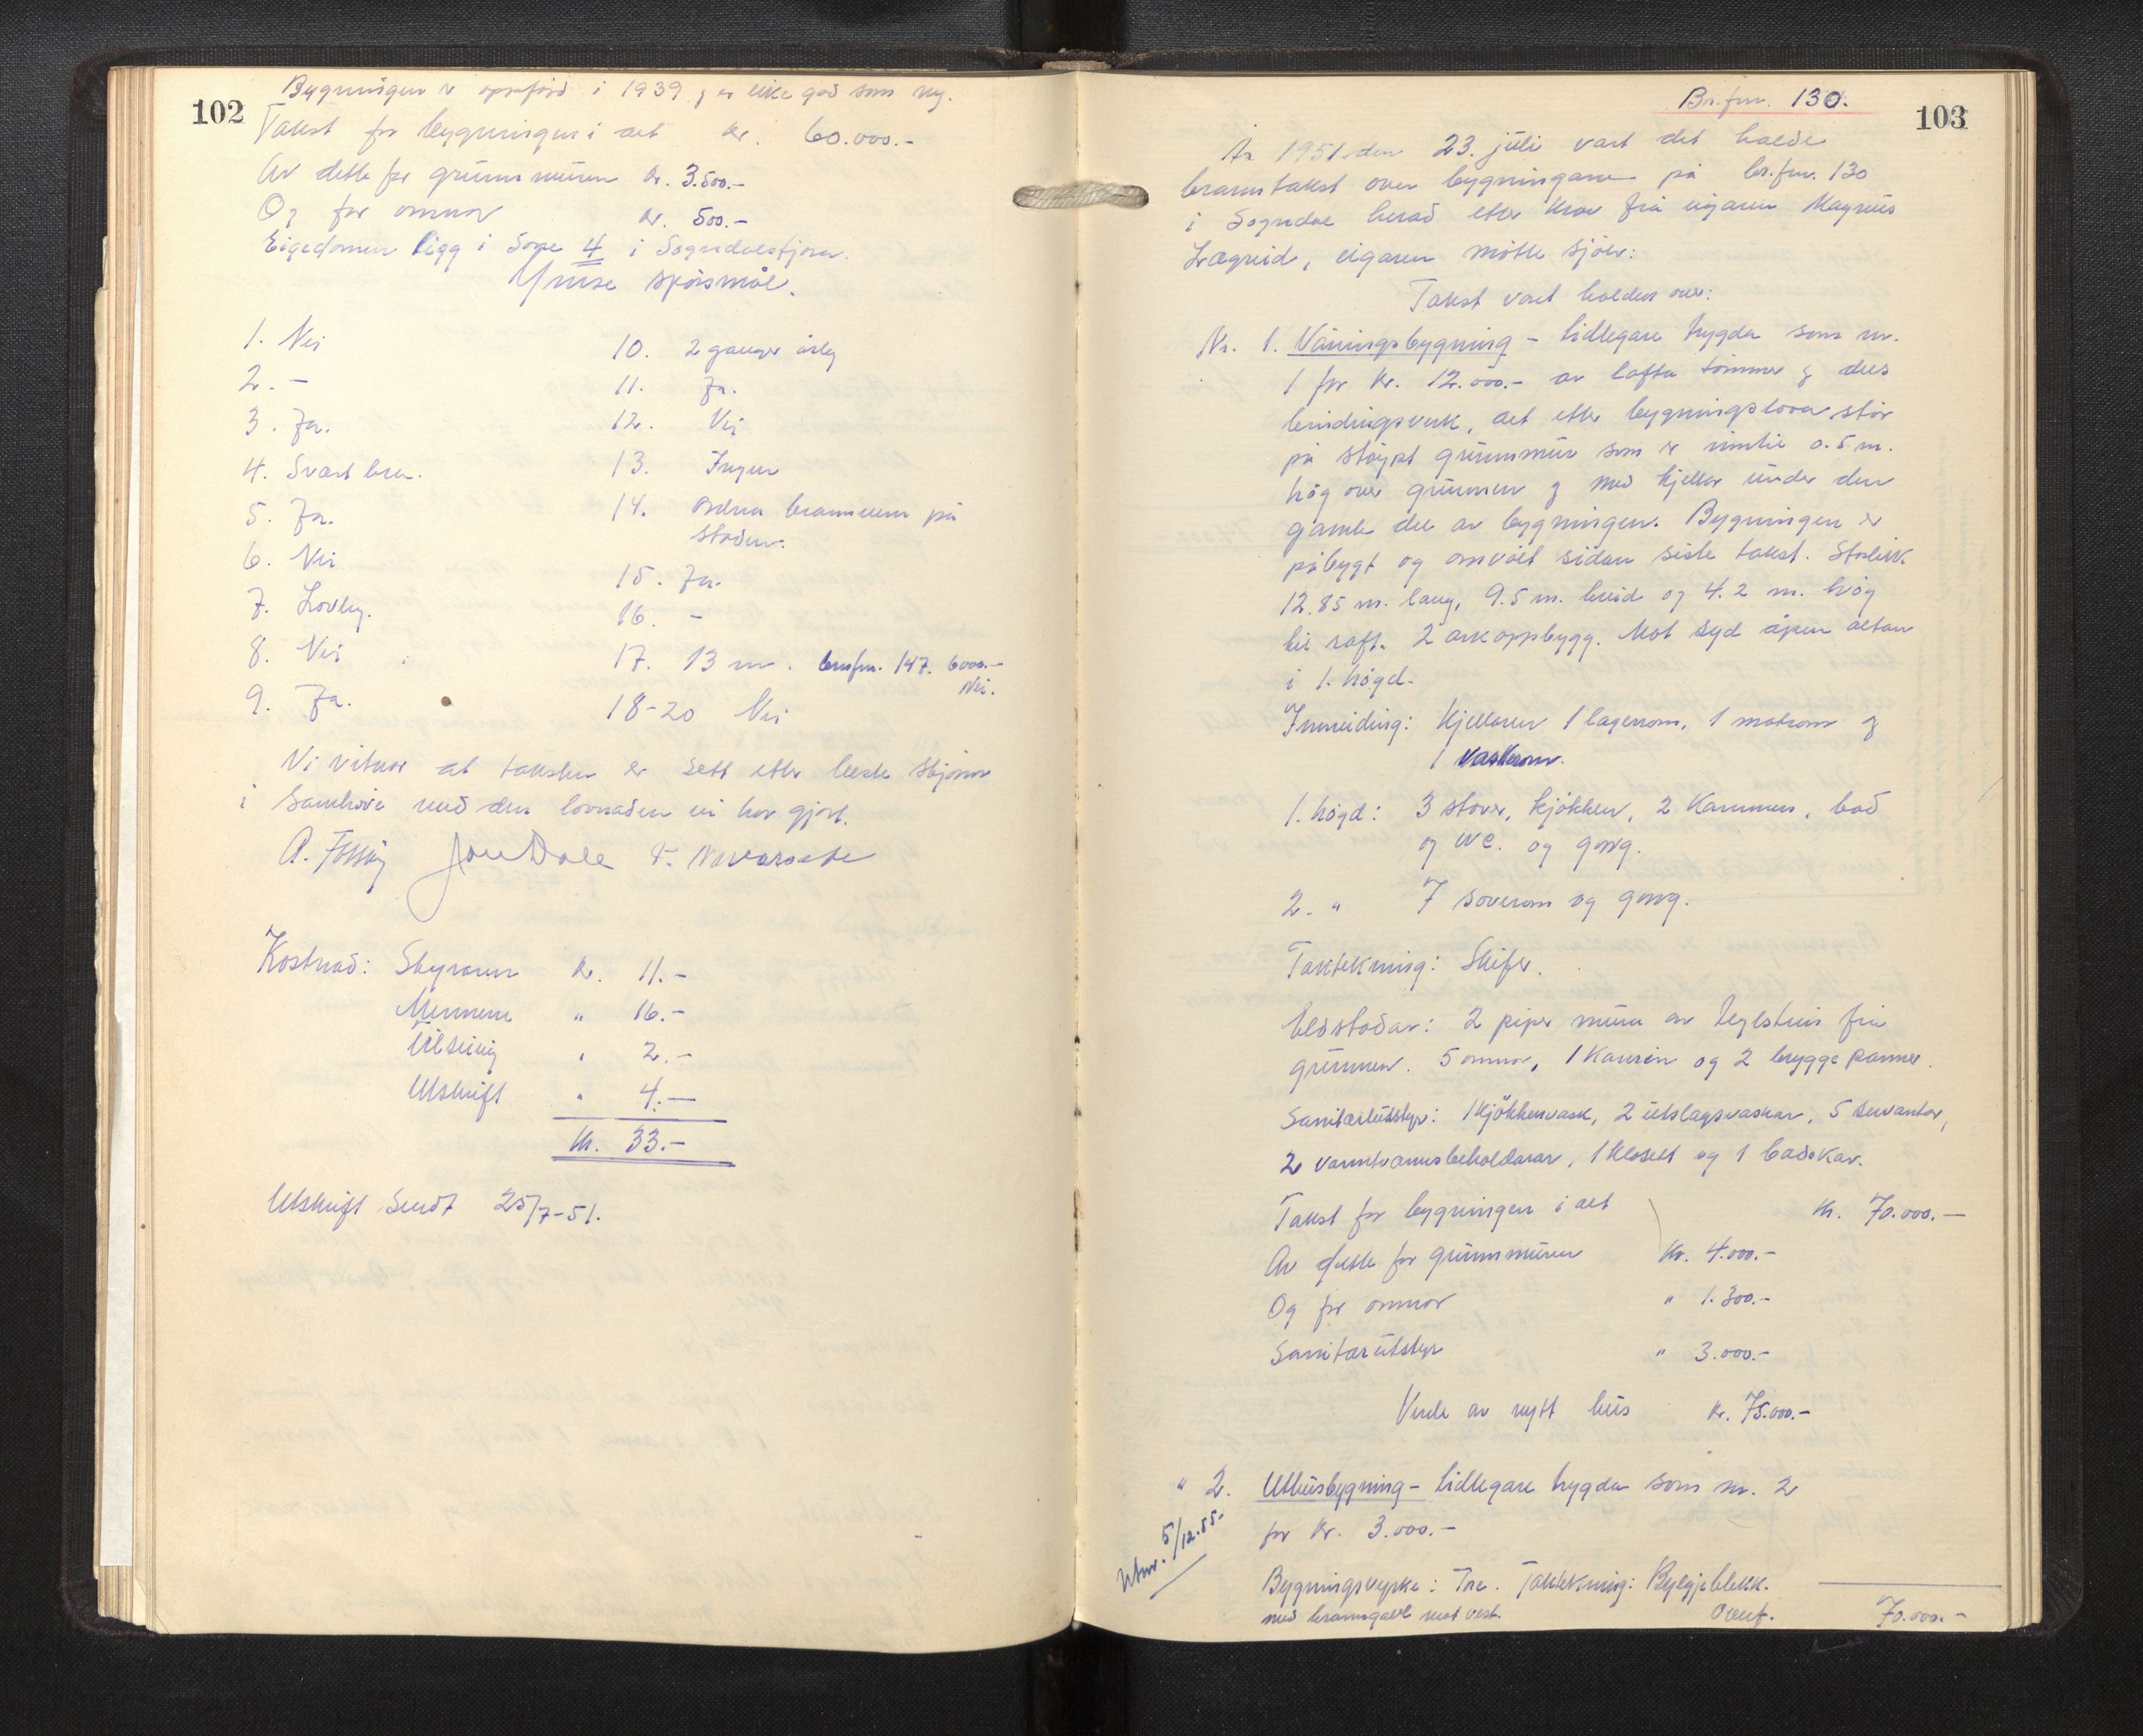 102
Bygningen er oppførd i 1939 og er like god som ny.
Takst for bygningen i alt kr. 60.000.-
Av dette for grunnmuren kr. 3.500.-
Og for omnar kr. 500.-
Eigedomen ligg i Sone 4 i Sogndalsfjøra.
Ymse spørsmål.
1. Nei
2. -
3. Ja.
4. Svært bra.
5. Ja.
6. Nei
7. Lovleg.
8. Nei
9. Ja.
10. 2 ganger årleg
11. Ja.
12. Nei
13. Ingen
14. Ordna brannvern på
staden.
15. Ja.
16. -
17. 13 m. br.fnr. 147. 6000.-
Nei.
18-20 Nei
Vi vitnar at taksten er sett etter beste skjønn
i samhøve med den lovnaden vi har gjort.
A. Fossøy Jon Dale T. Navarsete
Kostnad: Styraren kr. 11.-
Mennene " 16.-
Tilseing " 2.-
Utskrift " 4.-
Kr. 33.-
Utskrift sendt 25/7-51.
103
Br.fnr. 130.
År 1951 den 23. juli vart det halde
branntakst over bygningane på br.fnr. 130
i Sogndal herad etter krav frå eigaren Magnus
Lægreid, eigaren møtte sjølv:
Takst vart halden over:
Nr. 1. Våningsbygning - tidlegare trygda som nr.
1 for kr. 12.000.- av lafta tømmer og dels
bindingsverk, alt etter bygningslova, står
på støypt grunnmur som er rimlie 0.5 m.
høg over grunnen og med kjellar under den
gamle del av bygningen. Bygningen er
påbygt og omvølt sidan siste takst. Storleik
12.85 m. lang, 9.5 m. breid og 4.2 m. høg
til raft. 2 arkoppbygg. Mot syd åpen altan
i 1. høgd.
Innreiding: Kjellaren 1 lagerrom, 1 matrom og
1 vaskerom.
1. høgd: 3 stover, kjøkken, 2 kammers, bad
og WC. og gang.
2. " 7 soverom og gang.
Taktekning: Skifer.
Eldstadar: 2 piper mura av teglstein frå
grunnen. 5 omnar, 1 kamin og 2 bryggepanner.
Sanitærutstyr: 1 kjøkkenvask, 2 utslagsvaskar, 5 servantar,
2 varmtvannsbeholdarar, 1 klosett og 1 badekar.
Takst for bygningen i alt kr. 70.000.-
Av dette for grunnmuren kr. 4.000.-
Og for omnar " 1.300.-
Sanitærutstyr " 3.000.-
Verde av nytt hus kr. 75.000.-
" 2. Uthusbygning - tidlegare trygda som nr. 2
for kr. 3.000.-
Utmr. 5/12.55-
Bygningsvyrke: Tre. Taktekning: Bylgjeblekk.
med branngavl mot vest.
Overf. 70.000.-